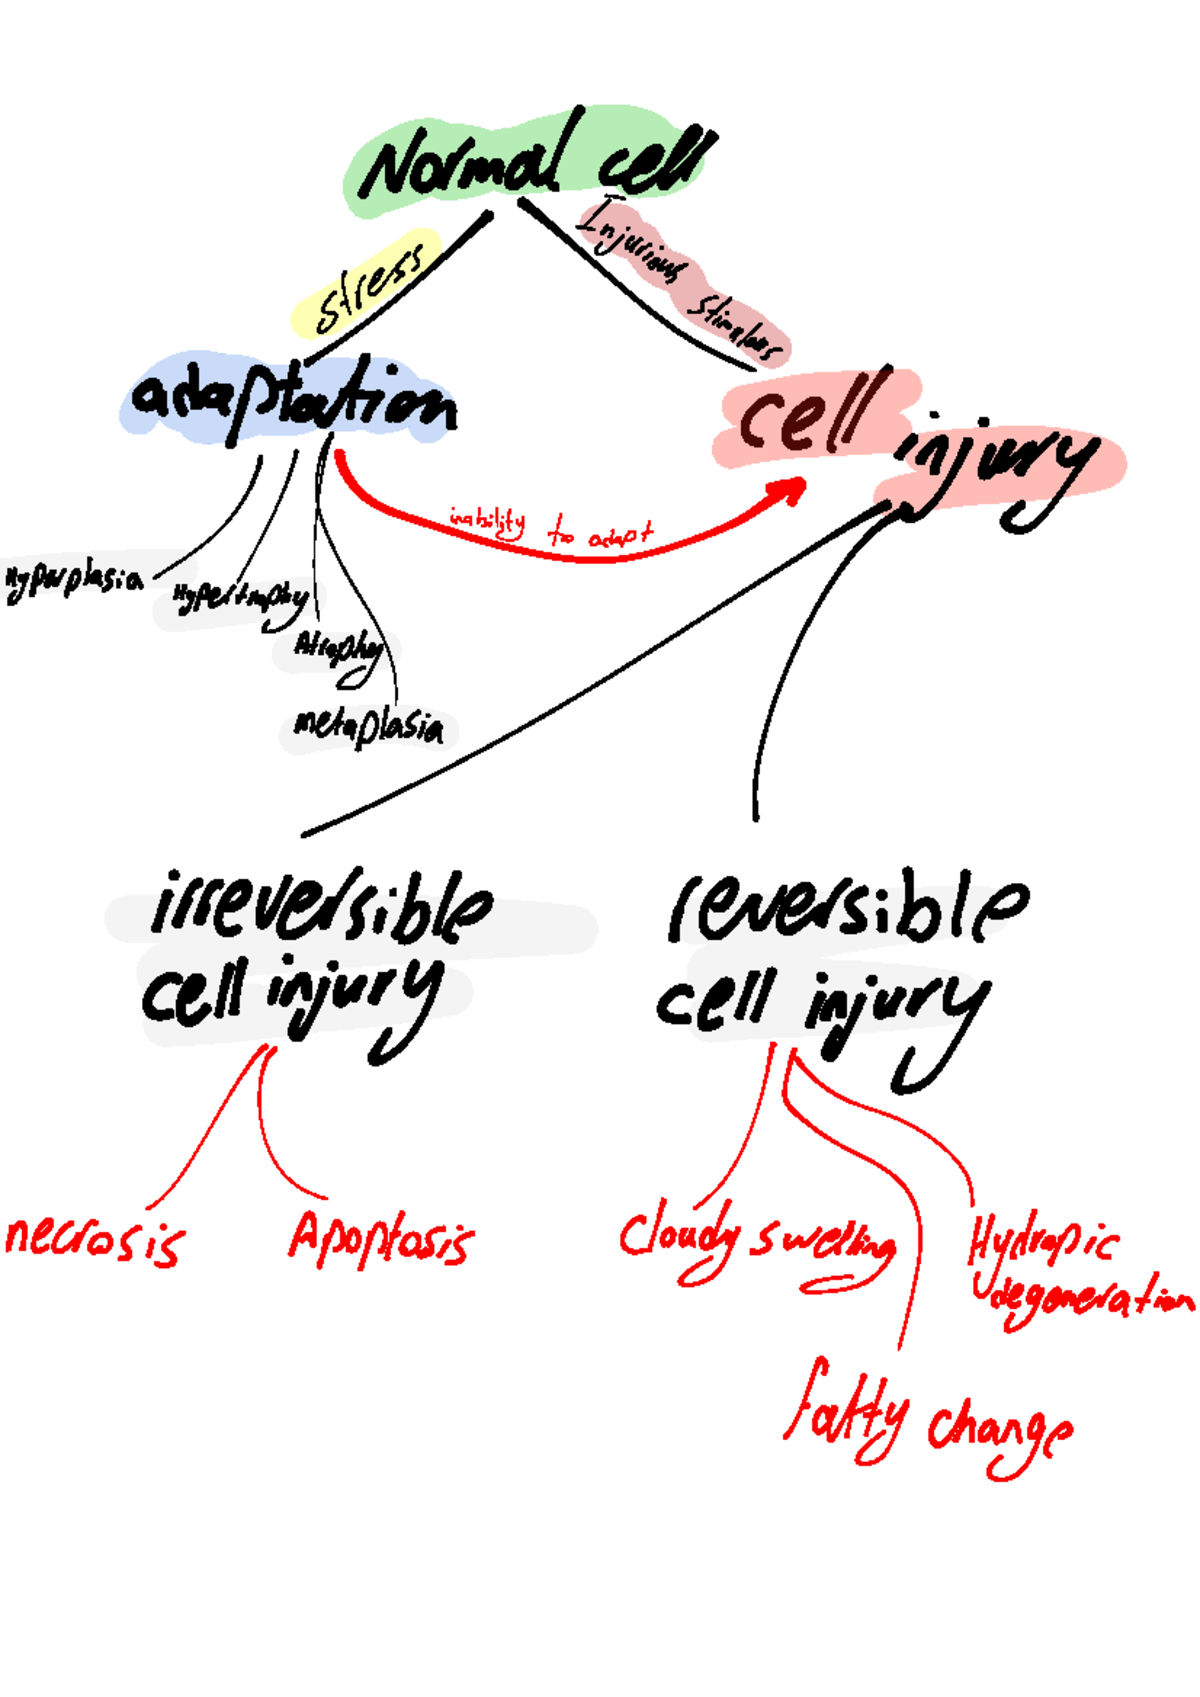 Normal cell
stress
Injurious stimulous
adaptation
cell injury
inability to adapt
Hyperplasia
Hypertrophy
Atrophy
metaplasia
irreversible
cell injury
reversible
cell injury
necrosis
Apoptosis
Cloudy swelling
Hydropic
degeneration
fatty change